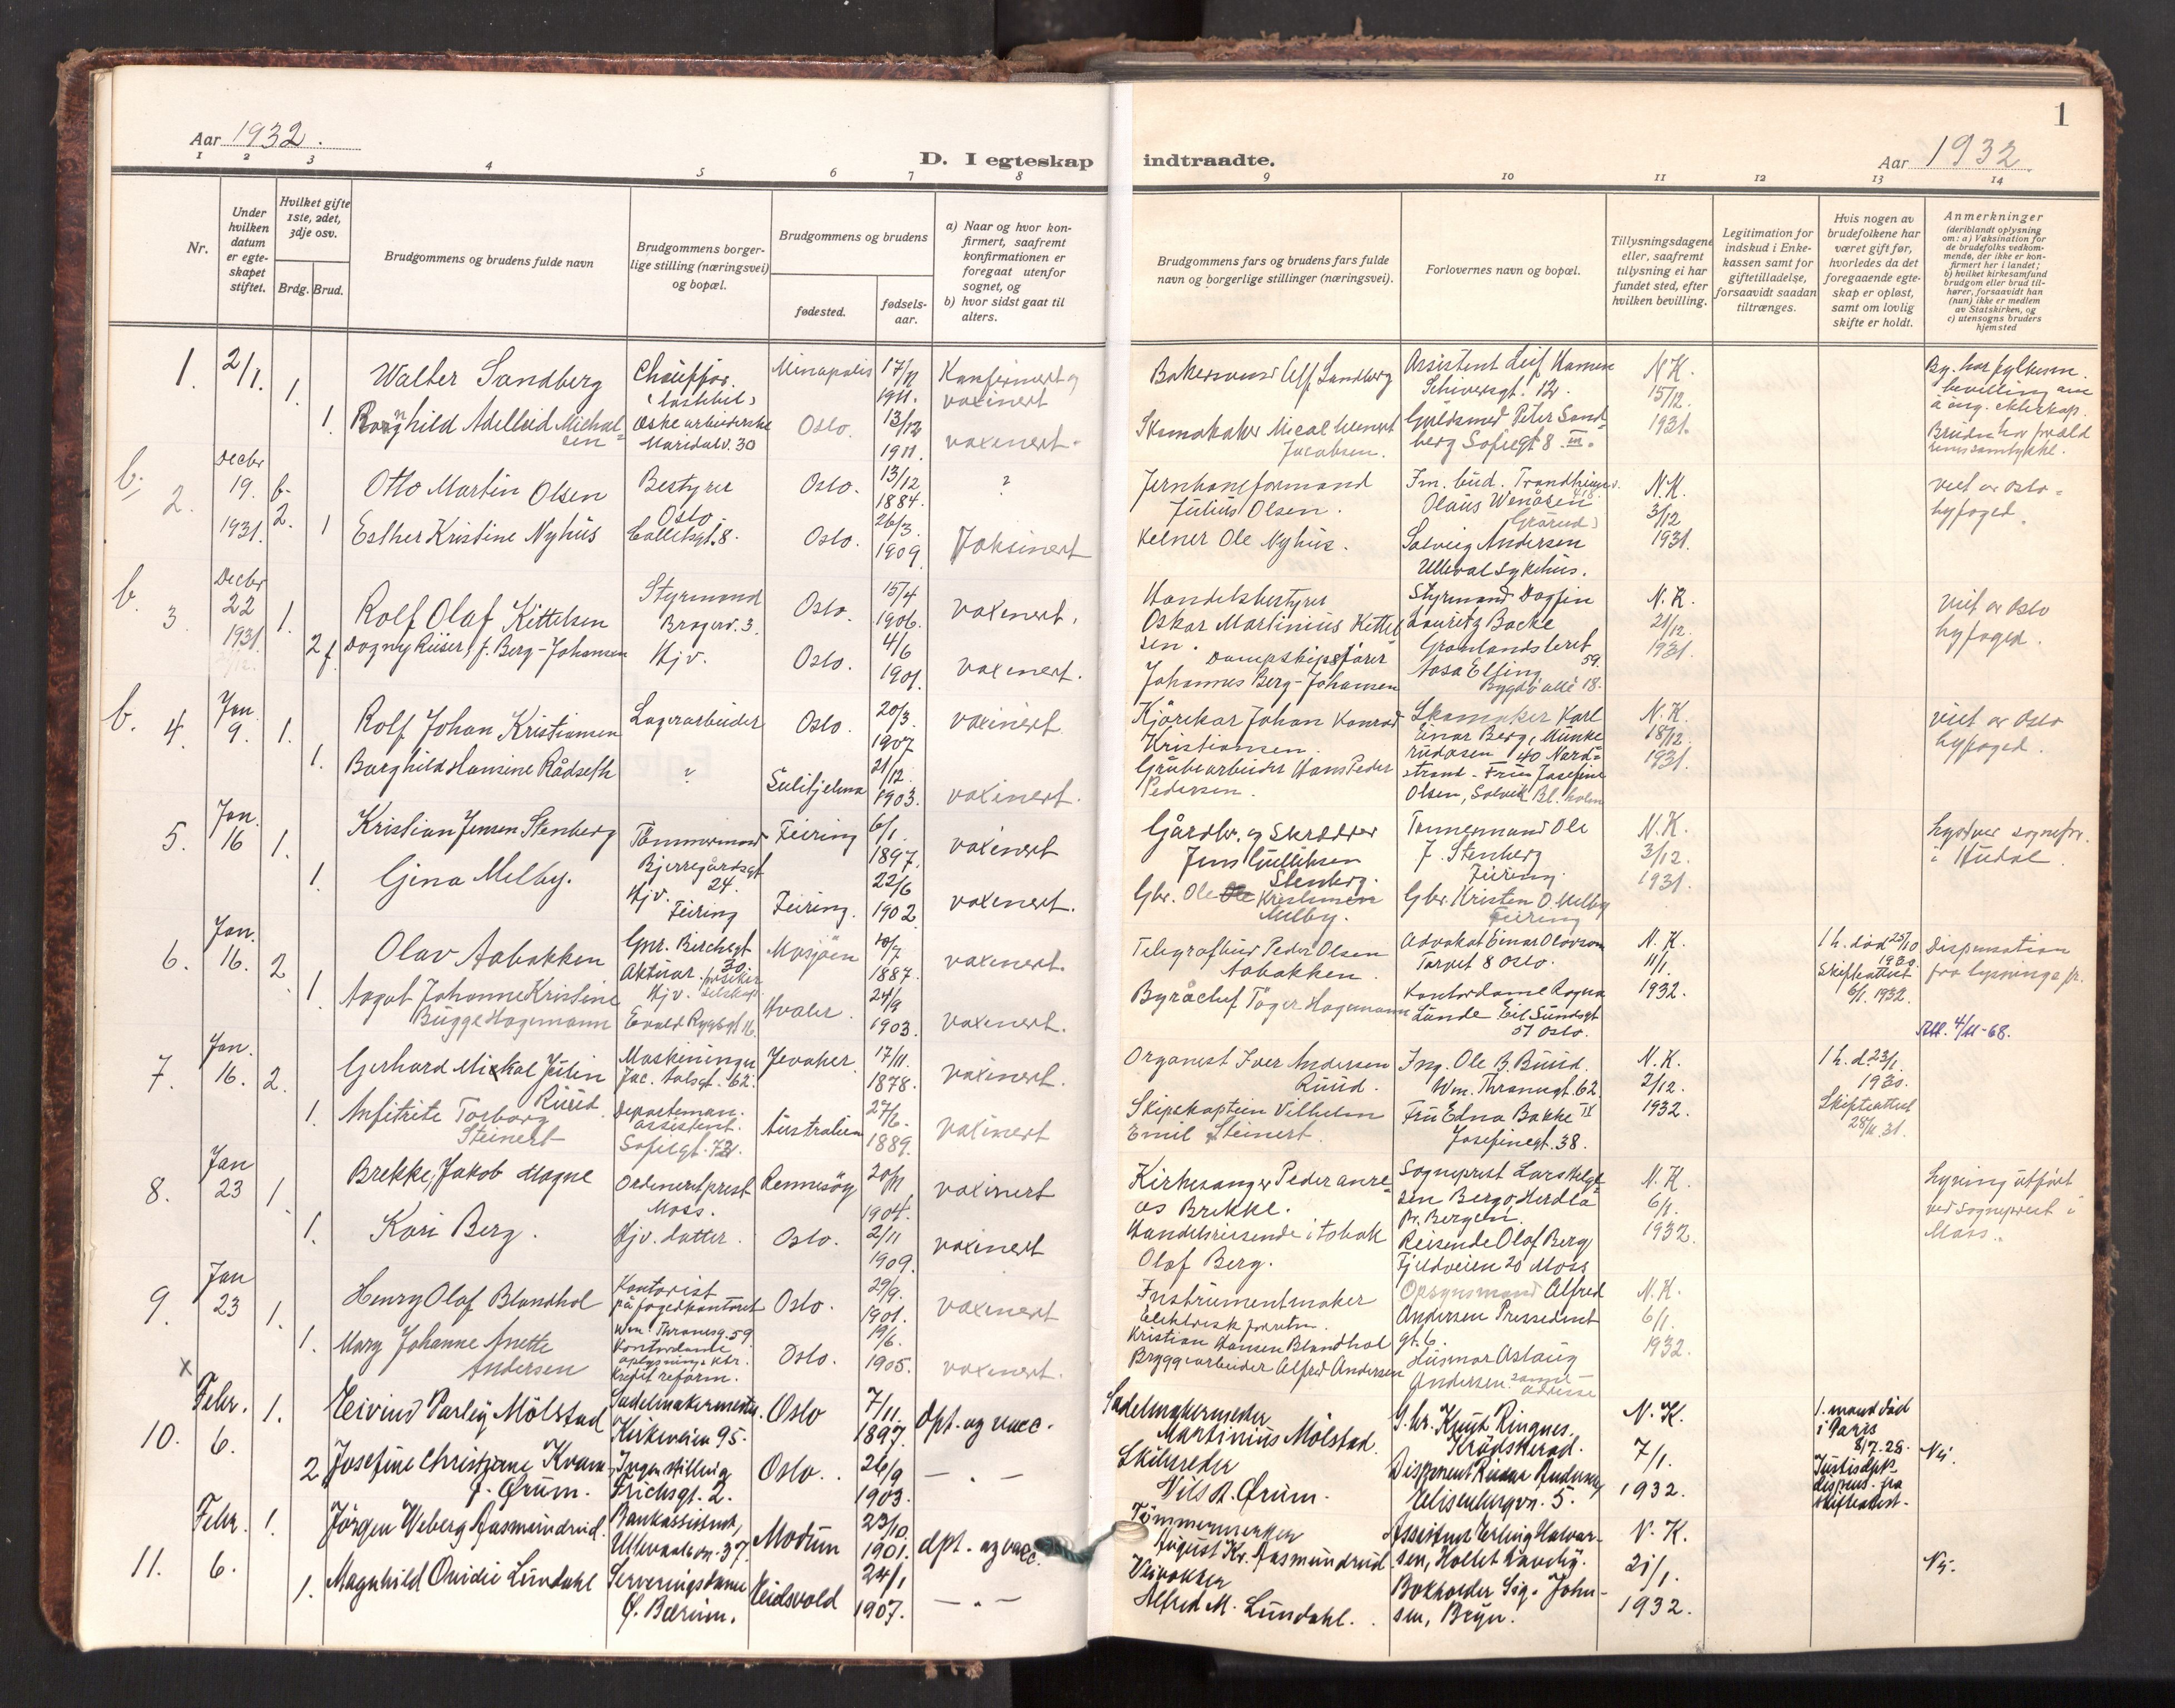 Aar 1932.
D. I egteskap indtraadte.
Aar 1932
1
1 2 3 4 5 6 7 8 9 10 11 12 13 14
Nr.
Under hvilken datum er egteskapet stiftet.
Hvilket gifte 1ste, 2det, 3dje osv.
Brdg. Brud.
Brudgommens og brudens fulde navn
Brudgommens borgerlige stilling (næringsvei) og bopæl.
Brudgommens og brudens
fødested.
fødselsaar.
a) Naar og hvor konfirmert, saafremt konfirmationen er foregaat utenfor sognet, og
b) hvor sidst gaat til alters.
Brudgommens fars og brudens fars fulde navn og borgerlige stillinger (næringsvei).
Forlovernes navn og bopæl.
Tillysningsdagene eller, saafremt tillysning ei har fundet sted, efter hvilken bevilling.
Legitimation for indskud i Enkekassen samt for giftetilladelse, forsaavidt saadan tiltrænges.
Hvis nogen av brudefolkene har været gift før, hvorledes da det foregaaende egteskap er opløst, samt om lovlig skifte er holdt.
Anmerkninger
(deriblandt oplysning om: a) Vaksination for de brudefolks vedkommende, der ikke er konfirmert her i landet; b) hvilket kirkesamfund brudgom eller brud tilhører, forsaavidt han (hun) ikke er medlem av Statskirken, og c) utensogns bruders hjemsted
1. 2/1. 1. Walter Sandberg Chauffør. Minapolis 17/11 1911. Konfirmert og vaxinert
Alf Sandberg Assistent Leif Hansen Schiversgt. 12. N.K. 15/12. 1931.
1. Adelheid Eske arbeiderske Maridalsv. 30 Oslo. 13/12 1911. vaxinert.
Skomaker Jacobsen. Guldsmed Peter Sandberg Sofiegt 8 III.
b. 2. Decbr 19. 1931. 2. Otto Martin Olsen Bestyrer Oslo. Oslo. 13/12 1884. ?
Jernhaneformand Julius Olsen. Olaus N.K. 3/12 1931. viet av Oslo byfoged.
1 Esther Kristine Nyhus Colletsgt. 8. Oslo. 26/3. 1909 Vaksinert
Kelner Ole Nyhus. Solveig Andersen Ulleval sykehus.
b. 3. Decbr 22 1931. 1. Rolf Olaf Kittelsen Styrmand Oslo. 15/4 1906. vaxinert.
Handelsbestyrer Oskar Martinius Kittelsen. Styrmand Dagfin Lauritz Backe Grønlandsleret 59. N.K. 21/12. 1931. viet av Oslo byfoged.
2 Dagny Riiser f. Berg-Johansen Hjv. Oslo. 4/6 1901. vaxinert.
Dampskipsfører Johannes Berg-Johansen Aasa Elling Bygdø allé 18.
b. 4. Jan. 9. 1. Rolf Johan Kristiansen Lagerarbeider Oslo. 20/3. 1907 vaxinert
Kjørekar Johan Konrad Kristiansen. Skomaker Karl Einar Berg, N.K. 18/12. 1931. viet av Oslo byfoged.
1. Borghild Hansine Rådseth ? Sulitjelma 21/12. 1903. vaxinert.
Grubearbeider Hans Peder Pedersen. Fru Josefine Olsen,
5. Jan. 16 1. Kristian Jensen Stenberg Tømmermand Bjerregårdsgt 24. Feiring 6/1. 1897. vaxinert
Gårdbr. og Skrædder Jens Gulliksen Stenberg. Tømmermand Ole J. Stenberg Feiring. N.K. 3/12. 1931. lyst ver sognepr. i Hurdal.
1. Gina Melby. Hjv. Feiring Feiring. 22/6 1902 vaxinert.
Gbr. Ole Kristiansen Melby. Gbr. Kristen O. Melby Feiring
6. Jan. 16. 2. Olav Aabakken Gnr. Birchsgt 30 Aktuar. Mosjøen 10/7 1887. vaxinert.
Telegrafbud Peder Olsen Aabakken. Advokat Einar Olavson Torvet 8 Oslo. N.K. 11/1. 1932. 1 h. død 25/10 1930 Skifteattest 6/1. 1932. Dispensation fra lysning
1. Aagot Johanne Kristine Bugge Hagemann Hjv. Hvaler. 24/9 1903. vaxinert.
Byråchef Tøger Hagemann Kontordame Ragna Lunde Eil. Sundsgt 51 Oslo. 4/11-68.
7. Jan. 16. 2. Gerhard Mikal Julin Ruud Maskiningen. Jac. Aalsgt. 62. Jevaker. 17/11. 1878. vaxinert.
Organist Iver Andersen Ruud. Ing. Ole B. Ruud. Wm. Thranesgt. 62. N.K. 2/12. 1932. 1 h. d. 23/1. 1930. Skifteattest 28/11. 31.
1. Anfitrite Torborg Steinert Departeman. assistent. Sofiegt. 72. Australien 27/6. 1889. vaxinert
Skipskaptein Vilhelm Emil Steinert. Fru Edna Bakke Josefinegt. 38.
8. Jan 23 1. Brekke, Jakob Magne Ordineret prest Moss. Rennesøy 20/11 1904. vaxinert
Kirkesanger Peder Brekke. Sogneprest Lars Pr. Bergen. N.K. 6/1. 1932. Lysning utført ved sogneprest i Moss.
1. Kari Berg. Hjv. datter. Oslo. 2/11 1909. vaxinert
Handelsreisende Olaf Berg. Reisende Olaf Berg Fjeldveien 20 Moss
9. Jan 23 1. Henry Olaf Blandhol Kontorist på fogedkontoret Wm. Thranesg. 59 Oslo. 29/9. 1901. vaxinert
Instrumentmaker Kristian Hansen Blandhol Opsynsmand Alfred Andersen gt. 6. N.K. 6/1. 1932.
x 1. Mary Johanne Anette Andersen Kontordame oplysnings ktr. kredit reform. Oslo. 19/6. 1905. vaxinert.
Bryggearbeider Alfred Andersen Husmor Aslaug Andersen. samme adresse
10. Febr. 6. 1. Eivind Parley Mölstad Sadelmakermester. Kirkeveien 95. Oslo 7/11. 1897. Dpt. og vacc.
Sadelmakermester Martinius Mölstad. G.br. Knut Ringnes, Krødsherad. N.K. 7/1. 1932. 1. mand død i Paris 8/7.28. Justisdpt. dispens. fra skifteattest. Nei.
2 Josefine Christiane Kvam f. Ørum. Ingen stilling Frichsgt. 2. Oslo. 26/9 1903. — " —
Skibsreder Nils A. Ørum. Disponent Andersen Elisenbergvn. 5.
11. Febr. 6. 1. Jörgen Weberg Aasmundrud. Bankassistent, Ullevaalsvn. 37. Modum 23/10. 1901. dpt. og vacc.
Tömmermester August Kr. Aasmundrud. Assistent Erling Halvorsen, N.K. 21/1. 1932. Nei.
1. Magnhild Ovidie Lundahl Serveringsdame Ö. Bærum. Eidsvold 24/1 1907. — " —
Veivokter Alfred M. Lundahl. Bokholder Sig. Johnsen, Bryn.